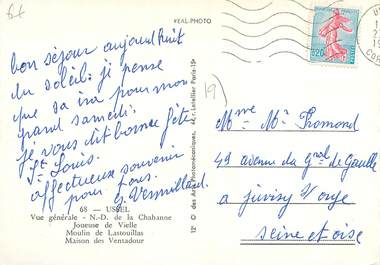 64
REAL-PHOTO
bon séjour aujourd'huit
du soleil: je pense
que sa ira pour mon
grand samedi;
je vous dit bonne fête
St Louis.
affectueux souvenir
pour tous.
Y. Vermillard
68 — USSEL
Vue générale - N.-D. de la Chabanne
Joueuse de Vielle
Moulin de Lastouillas
Maison des Ventadour
12° des Arts Photomécaniques, 44, r. Letellier Paris-15e
19
0,20
Mme Mr Promond
49 avenue du Gnal de Gaulle
a juvisy s/ orge
seine et oise